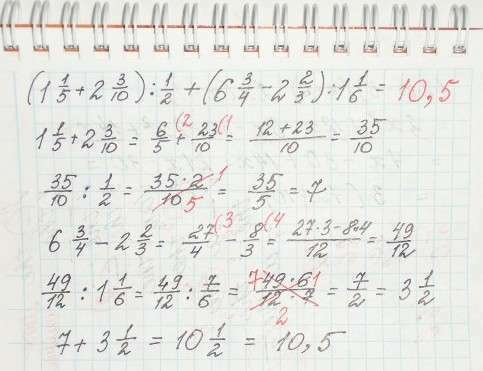 (1 1/5 + 2 3/10) : 1/2 + (6 3/4 - 2 2/3) : 1 1/6 = 10,5
1 1/5 + 2 3/10 = 6/5 (2 + 23/10 (1 = 12+23/10 = 35/10
35/10 : 1/2 = 35·2 1/10 5 = 35/5 = 7
6 3/4 - 2 2/3 = 27/4 (3 - 8/3 (4 = 27·3-8·4/12 = 49/12
49/12 : 1 1/6 = 49/12 : 7/6 = 7 49·6 1/12·7 2 = 7/2 = 3 1/2
7 + 3 1/2 = 10 1/2 = 10,5